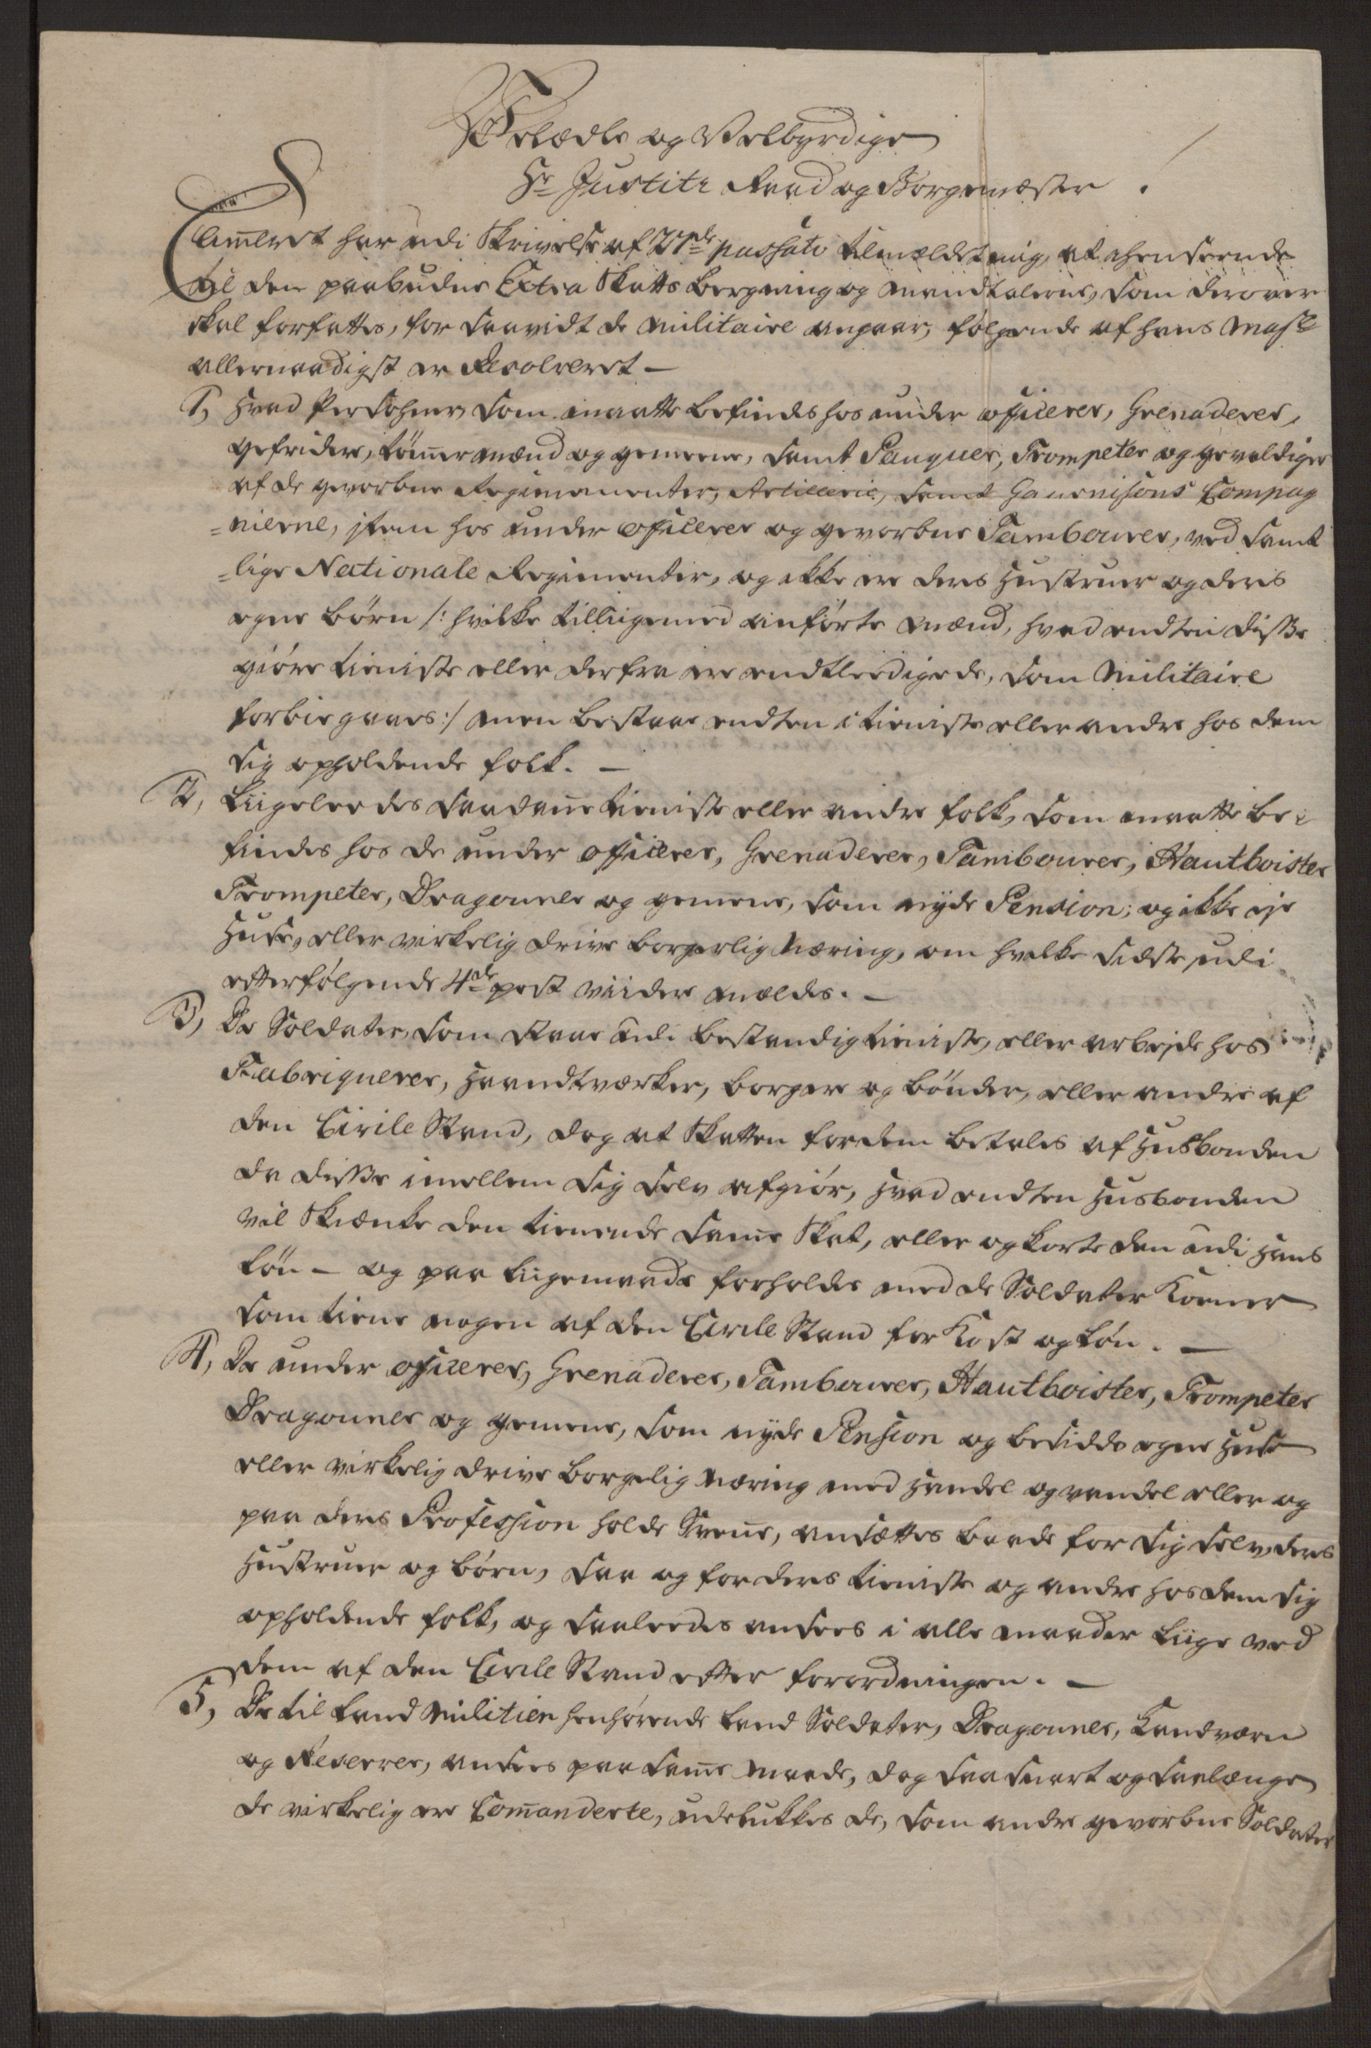 Velædle og Velbyrdige
Hr Justitz Raad og Borgemester.
Cammeret har udi Skrivelse af 27de passato tilmeldet mig, at henseende
til den paabudne Extra Skatts Bereging og Mandtalerne, som derover
skal forfattes, for saavidt de Militaire angaar, følgende af hans Mayst
allernaadigst er Resolveret —
1, Hvad Persohner som maatte befindes hos under officerer, Grenaderer,
gefrider, tømmermænd og gemeene, samt Pauquer, Trompeter og gevaldiger
af de gevorbne Regimenter, Artillerie, samt Gauenisons Compag
=nierne, jtem hos under officerer og gevorbne Tambourer, ved samt
=lige Nationale Regimenter, og ikke ere deres Hustruer og deres
egne børn /: hvilke tilligemed anførte Mænd, hvad endten disse
giøre tieniste eller derfra ere endtleedigede, som Militaire
forbiegaaes :/ men bestaar endten i tieniste eller andre hos dem
sig opholdende folk. —
2, Liigeleedes saadanne tieniste eller andre folk, som maatte be=
findes hos de under officerer, Grenaderer, Tambourer, Hautboister
Trompeter, Dragouner og gemeene, som nyde Pension; og ikke eje
Huse, eller virkelig drive borgerlig Næring, om hvilke sidste, udi
efterfølgende 4de post viidere meldes. —
3, De Soldater, som staae udi bestandig tieniste, eller arbejde hos
Fabriquerer, Haandtværker, borgere og bønder, eller andre af
den Civile Stand, dog at Skatten for dem betales af Husbonden
da disse imellem sig selv afgiør, hvad endten Husbonden
vil Skienke den tienende samme Skat, eller og korte den udi hans
løn — og paa liigemaade forholdes med de Soldater Koener
som tiene nogen af den Civile Stand for Kost og løn. —
4, De under officerer, Grenaderer, Tambourer, Hautboister, Trompeter
Dragouner og gemeene, som nyde Pension og besidde egne Huse
eller virkelig drive borgelig næring med Handel og vandel eller og
paa deres Profession holde Svenne, ansættes baade for sig selv, deres
Hustruer og børn, saa og for deres tieniste og andre hos dem sig
opholdende folk, og saaleedes ansees i alle maader liige ved
dem af den Civile Stand efter forordningen. —
5, De til Land Militien henhørende Land Soldater, Dragouner, Landværn
og Reserver, ansees paa samme Maade, dog saa snart og saalænge
de virkelig ere Commanderte, udelukkes de, som andre gevorbne Soldater